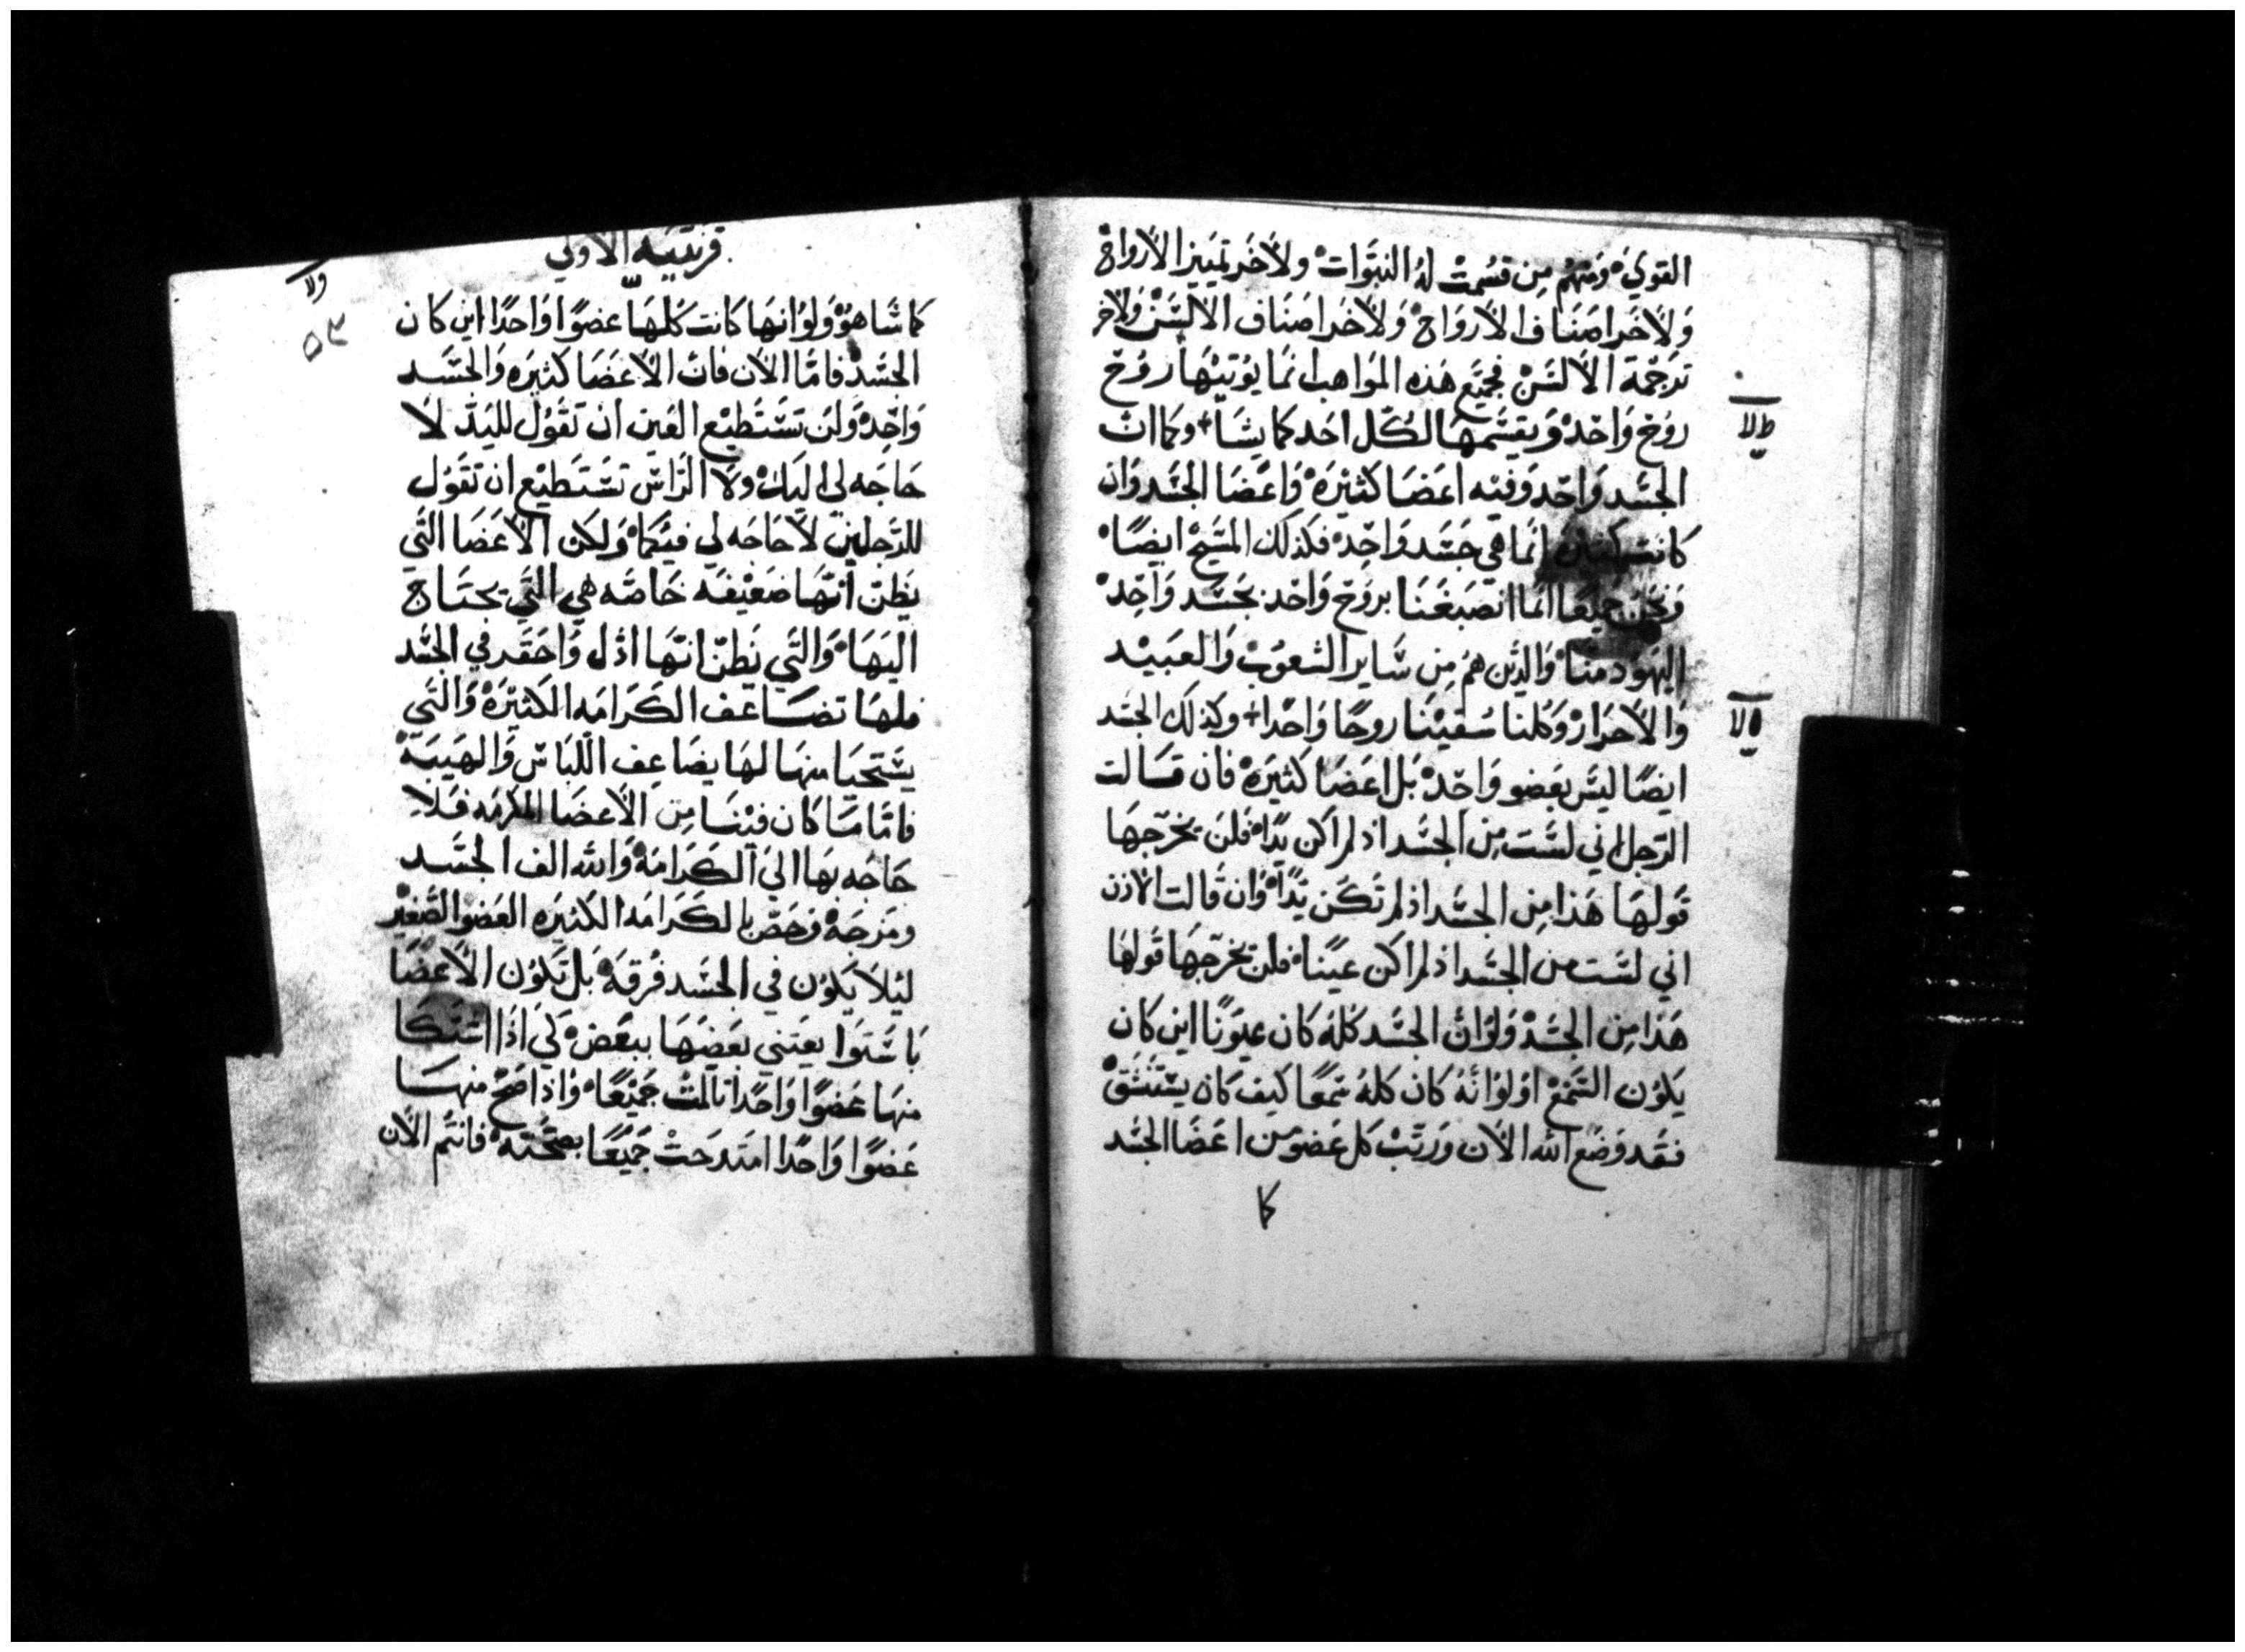 القوي ومنهم من قسمت له النبوات ولاخر تمييز الارواح
ولاخر اصناف الارواح ولاخر اصناف الالسن ولاخر
ترجمة الالسن فجميع هذه المواهب انما يوتيها روح
روح واحد ويقسمها لكل احد كما يشا + وكما ان
الجسد واحد وفيه اعضا كثيرة واعضا الجسد وان
كانت كثيرة انما هي جسد واحد فكذلك المسيح ايضًا
ونحن جميعًا انما انصبغنا بروح واحد بجسد واحد
اليهود منا والذين هم من ساير الشعوب والعبيد
والاحرار وكلنا سقينا روحًا واحدا + وكذلك الجسد
ايضًا ليس بعضو واحد بل اعضا كثيرة فان قالت
الرجل اني لست من الجسد اذ لم اكن يدًا فلن يخرجها
قولها هذا من الجسد اذ لم تكن يدًا وان قالت الاذن
اني لست من الجسد اذ لم اكن عينًا فلن يخرجها قولها
هذا من الجسد ولو ان الجسد كله كان عيونًا اين كان
يكون السمع او لو انه كان كله سمعًا كيف كان يستنشق
فقد وضع الله الان ورتب كل عضو من اعضا الجسد
كما
قرنتيه الاولي
٥٣
كما شا هو ولو انها كانت كلها عضوًا واحدًا اين كان
الجسد فاما الان فان الاعضا كثيره والجسد
واحد ولن تستطيع العين ان تقول لليد لا
حاجه لي اليك ولا الراس تستطيع ان تقول
للرجلين لا حاجه لي فيكما ولكن الاعضا التي
يظن انها ضعيفه خاصه هي التي يحتاج
اليها والتي نظن انها اذل واحقر في الجسد
فلها تضاعف الكرامه الكثيرة والتي
يستحيا منها لها يضاعف اللباس والهيبة
فاما ما كان فينا من الاعضا المكرمه فلا
حاجه بها الي الكرامة والله الف الجسد
ومزجه وخص بالكرامه الكثيره العضو الصغير
ليلا يكون في الجسد فرقة بل تكون الاعضا
باستوا يعتني بعضها ببعض لي اذا اشتكا
منها عضوًا واحدًا تالمت جميعًا واذا صح منها
عضوًا واحدًا امتدحت جميعًا بصحته فانتم الان